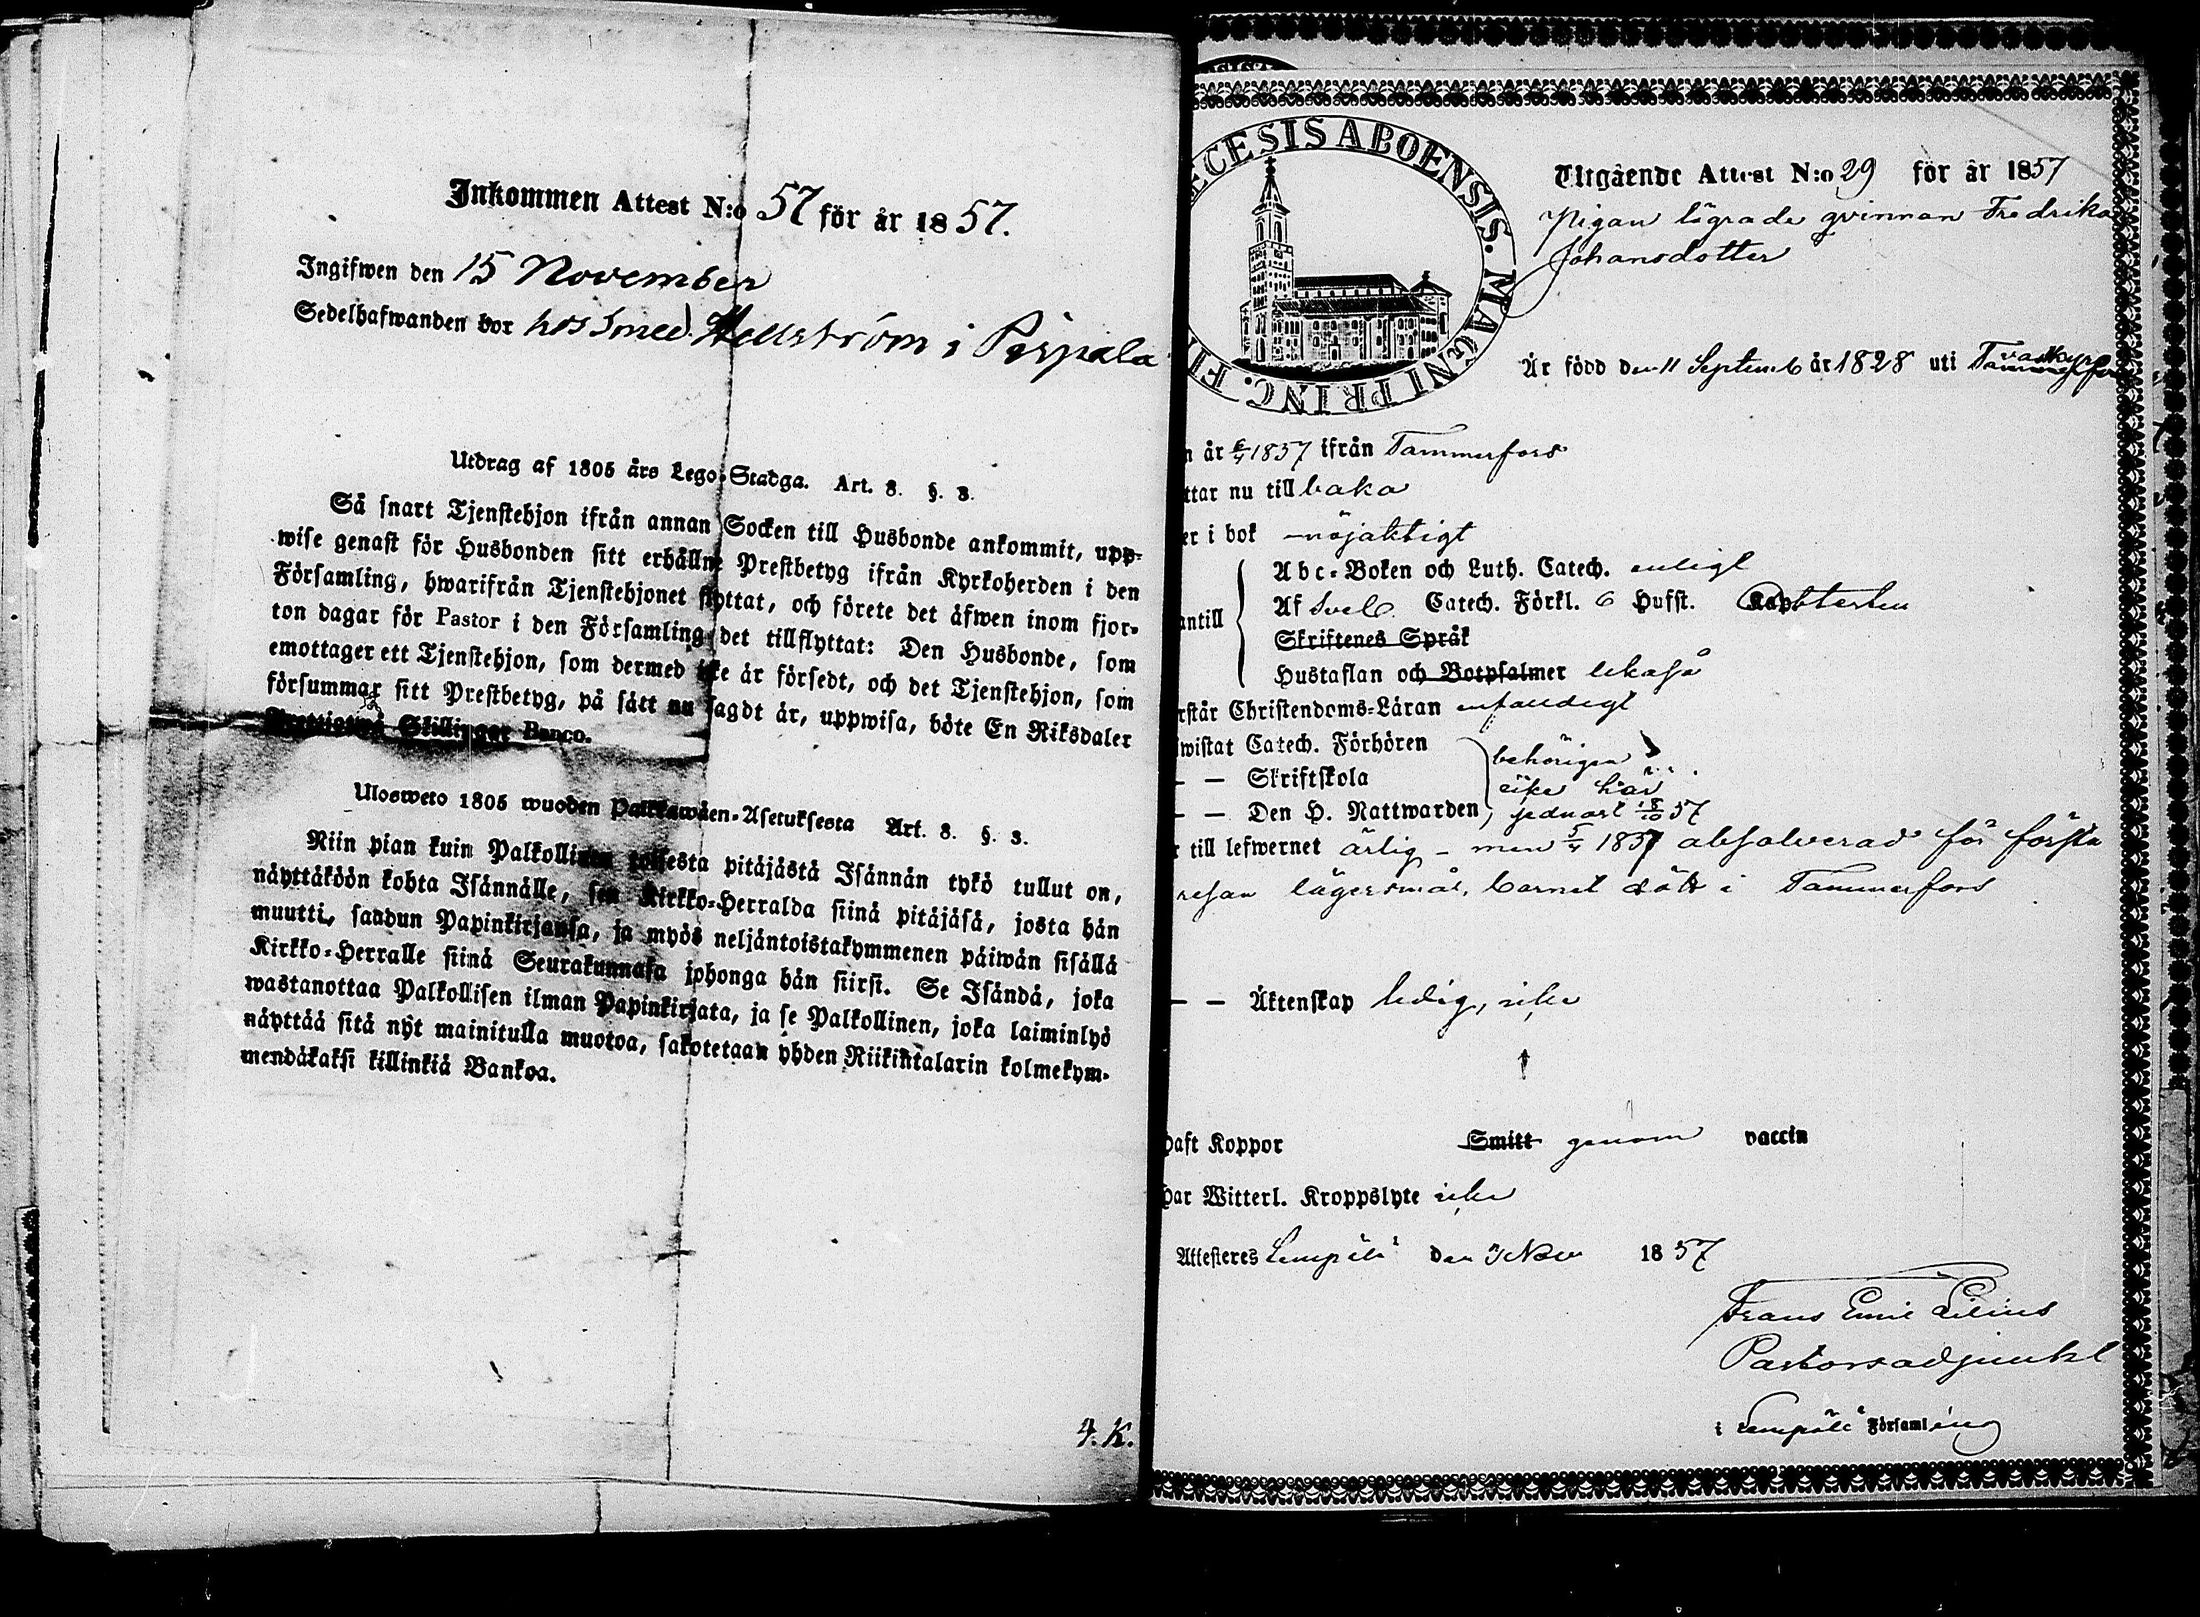 Inkommen Attest N:o 57 för år 1857.
Ingifwen den 15 November
Sedelhafwanden bor hos Smed. Hellström i Pispala
Utdrag af 1805 års Lego-Stadga. Art. 8. §. 3.
Så snart Tjenstehjon ifrån annan Socken till Husbonde ankommit, upp-
wise genast för Husbonden sitt erhållne Prestbetyg ifrån Kyrkoherden i den
Församling, hwarifrån Tjenstehjonet flyttat, och förete det äfwen inom fjor-
ton dagar för Pastor i den Församling det tillflyttat: Den Husbonde, som
emottager ett Tjenstehjon, som dermed icke är försedt, och det Tjenstehjon, som
försummar sitt Prestbetyg, på sätt nu sagdt är, uppwisa, böte En Riksdaler
Trettiotwå Skillingar Banco.
Ulosweto 1805 wuoden Palkkawäen-Asetuksesta Art. 8. §. 3.
Niin pian kuin Palkollinen toisesta pitäjästä Isännän tykö tullut on,
näyttäköön kohta Isännälle, sen Kirkko-Herralda siinä pitäjäsä, josta hän
muutti, saadun Papinkirjansa, ja myös neljäntoistakymmenen päiwän sisällä
Kirkko-Herralle siinä Seurakunnasa johonga hän siirsi. Se Isändä, joka
wastanottaa Palkollisen ilman Papinkirjata, ja se Palkollinen, joka laiminlyö
näyttää sitä nyt mainitulla muotoa, sakotetaan yhden Riikintalarin kolmekym-
mendäkaksi killinkiä Bankoa.
4. K.
ECESIS ABOENSIS. MAGNI PRINC. FI
Utgående Attest N:o 29 för år 1857
Pigan lägrade qvinnan Fredrika
Johansdotter
Är född den 11 Septemb år 1828 uti
n år 1857 ifrån Tammerfors
ttar nu tillbaka
er i bok nöjaktigt
Abc-Boken och Luth. Catech. enligt
Af Svel. Catech. Förkl. 6 Hufst.
antill
Skriftenes Språk
Hustaflan och Botpsalmer likaså
rstår Christendoms-Läran enfaldigt
wistat Catech. Förhören behörigen
— — Skriftskola icke här
— — Den H. Nattwarden, sednast 18/10 57
r till lefwernet ärlig - men 5/4 1857 absolverad för första
resan lägersmål, barnet dödt i Tammerfors
— — Äktenskap ledig, icke
haft Koppor Smitt genom vaccin
har Witterl. Kroppslyte icke
Attesteres Lempälä den 3 Nov 1857
Frans Emil Lilius
Pastorsadjunkt
i Lempälä Församling